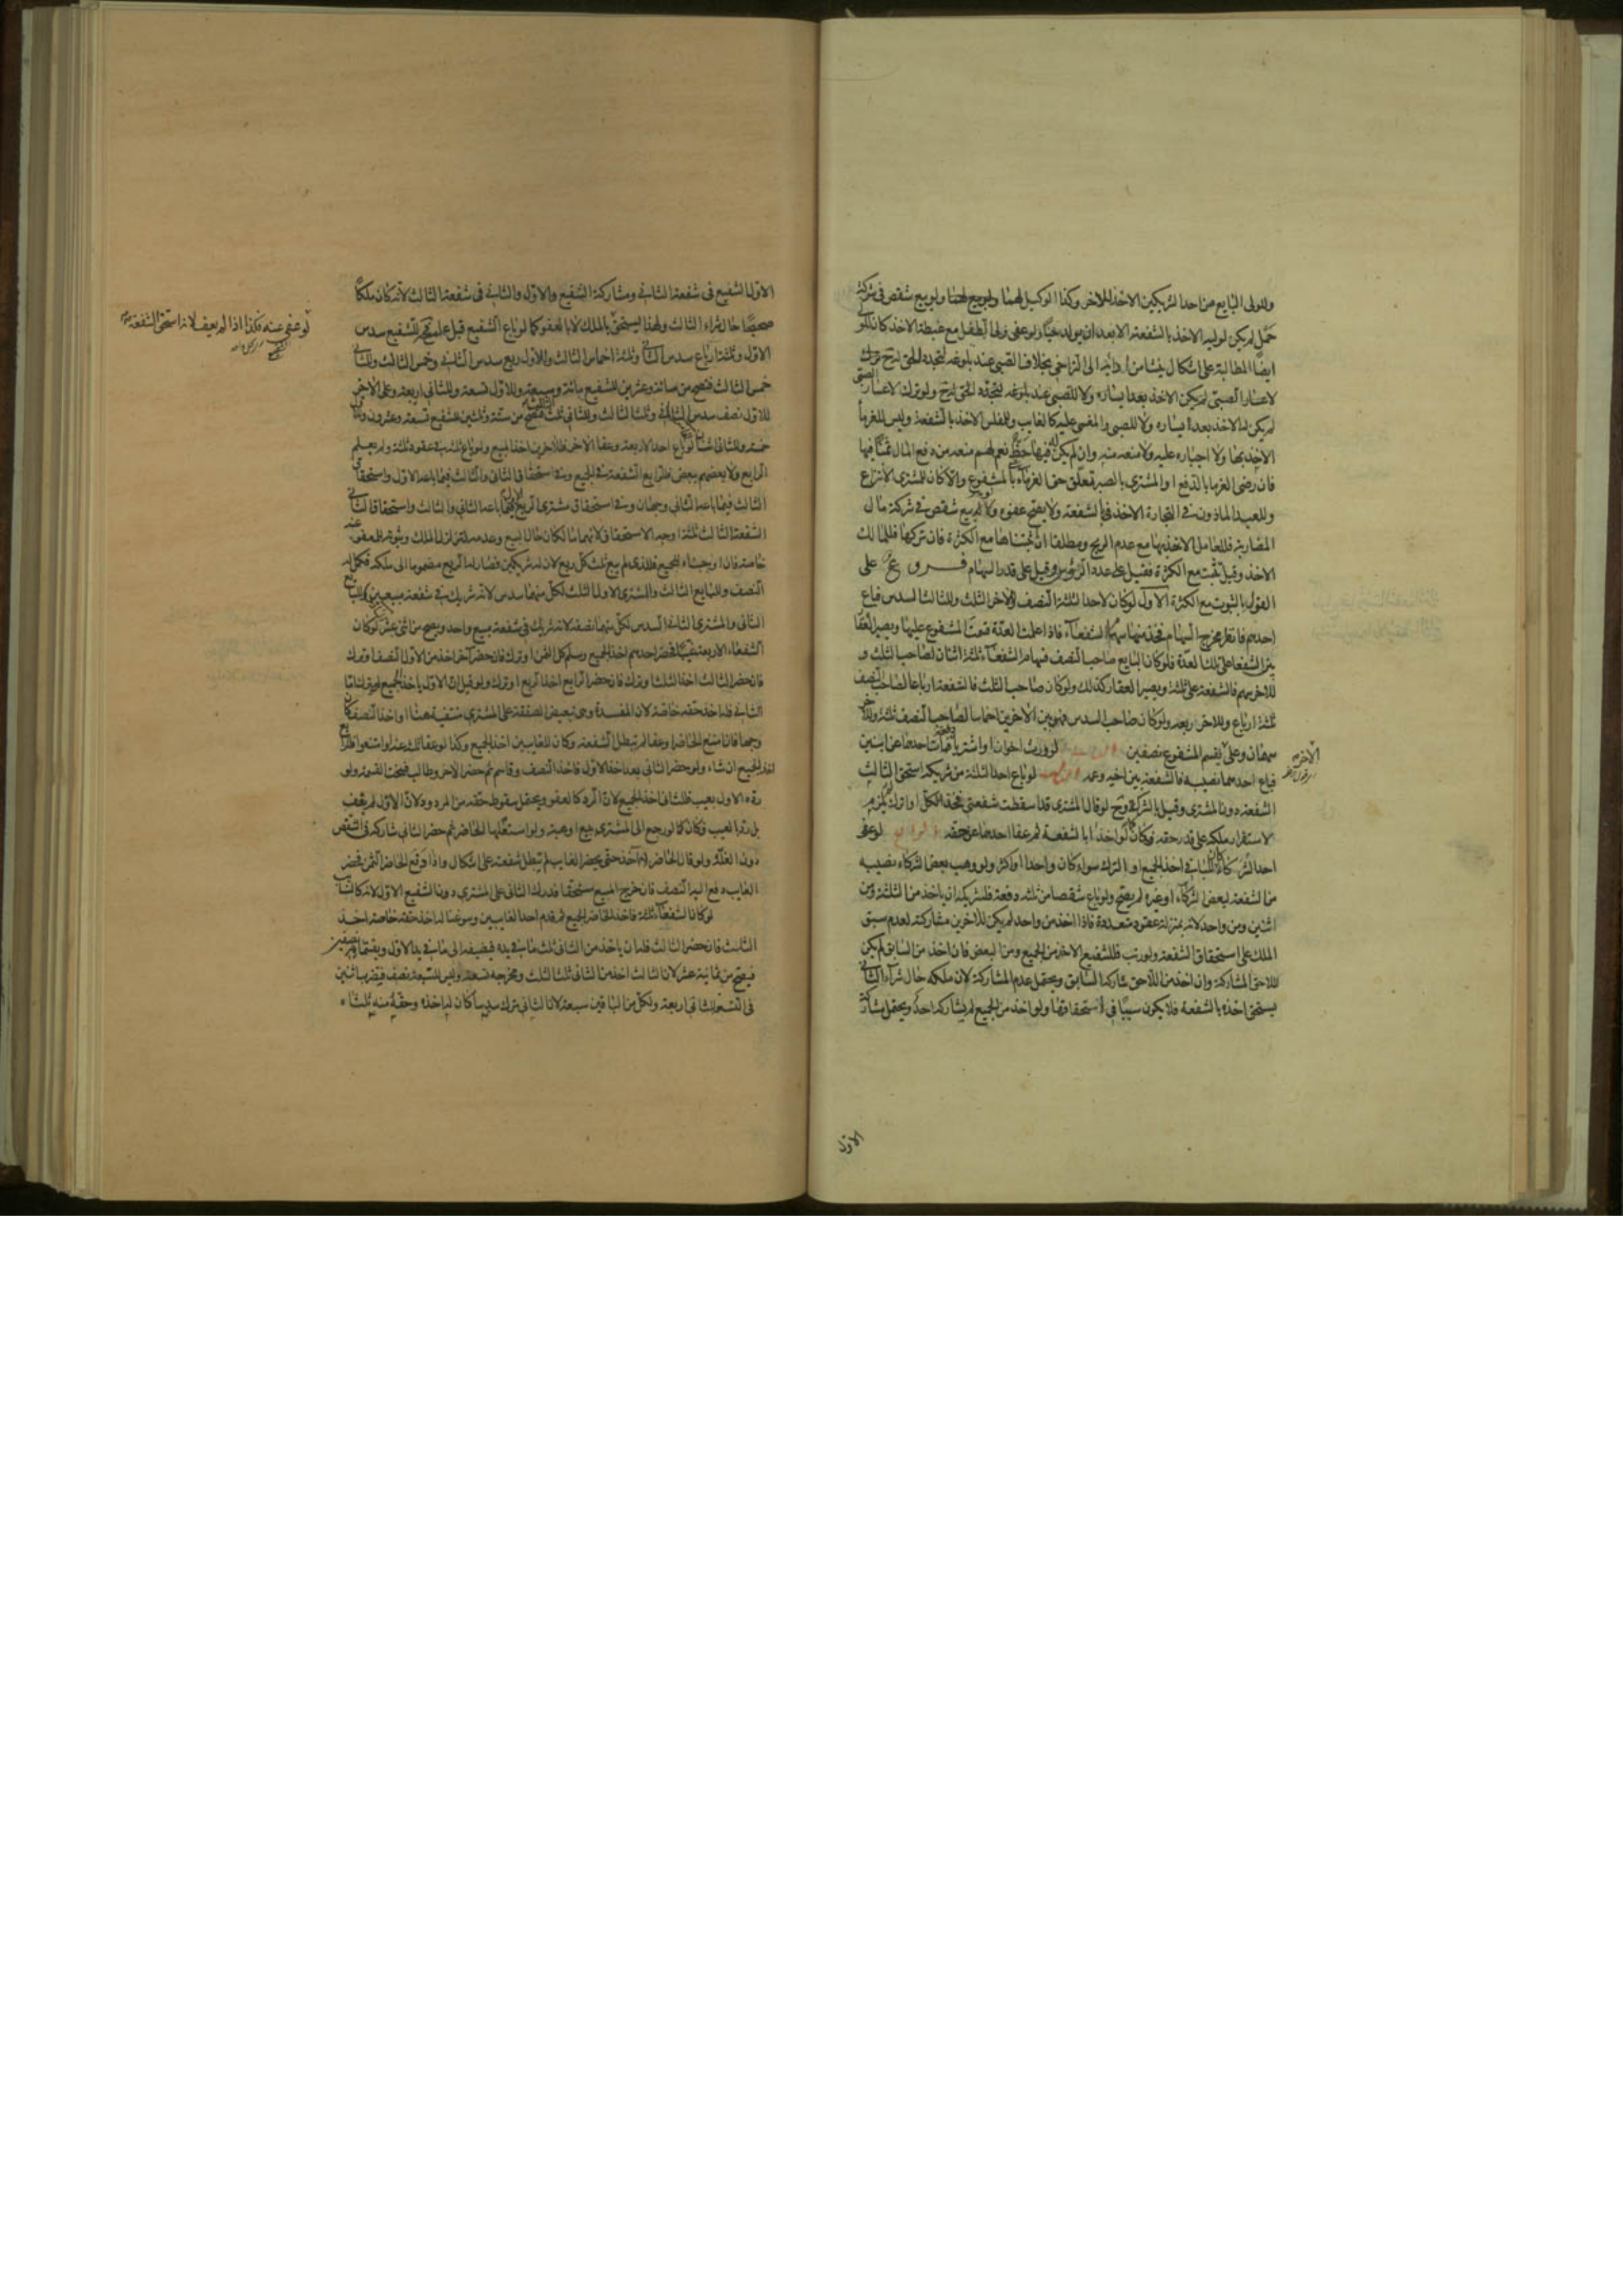 وللولى البايع من احد الشريكين الاخذ للاخر وكذا الوكيل لهما ولو بيع شقص فى شركة
حمل لم يكن لوليه الاخذ بالشفعة الا بعد ان يولد حيا ولو عفى ولى الطفل مع غبطة الاخذ كان للولى
ايضا المطالبة على اشكال ينشا من اداية الى التراخى بخلاف الصبى عند بلوغه لتجدد الحق له ح ولو ترك
لاعسار الصبى لم يكن له الاخذ بعد يساره ولا للصبى عند بلوغه لتجدد الحق له ح ولو ترك لاعسار الصبى
لم يكن له الاخذ بعد يساره ولا للصبى والمغمى عليه كالغايب وللمفلس الاخذ بالشفعة وليس للغرماء
الاخذ بها ولا اجباره عليه ولا منعه منه وان لم يكن له فيها حظ نعم لهم منعه من دفع المال ثمنا فيها
فان رضى الغرماء بالدفع او المشترى بالصبر تعلق حق الغرماء بالمشفوع والا كان للمشترى الانتزاع
وللعبد الماذون فى التجارة الاخذ بالشفعة ولا يصح عفوه ولو بيع شقص فى شركة مال
المضاربة فللعامل الاخذ بها مع عدم الربح ومطلقا ان اثبتناها مع الكثرة فان تركها فللمالك
الاخذ وقيل تثبت مع الكثرة فقيل على عدد الرؤس وقيل على قدر السهام فروع على
القول بالثبوت مع الكثرة الاول لو كان لاحد الثلثة النصف وللاخر الثلث وللثالث السدس فباع
احدهم فانظر مخرج السهام فخذ منها سهام الشفعاء فاذا علمت العدة قسمت المشفوع عليها ويصير العقار
بين الشفعاء على تلك العدة فلو كان البايع صاحب النصف فسهام الشفعاء ثلثة اثنان لصاحب الثلث و
للاخر سهم فالشفعة على ثلثة ويصير العقار كذلك ولو كان صاحب الثلث فالشفعة ارباعا لصاحب النصف
ثلثة ارباع وللاخر ربعه ولو كان صاحب السدس فهو بين الاخرين اخماسا لصاحب النصف ثلثة وللاخر
سهمان وعلى الاخر يقسم المشفوع نصفين الثانى لو ورث اخوان او اشتريا فمات احدهما عن ابنين
فباع احدهما نصيبه فالشفعة بين اخيه وعمه الثالث لو باع احد الثلثة من شريكه استحق الثالث
الشفعة دون المشترى وقيل بالشركة وح لو قال المشترى قد اسقطت شفعتى فخذ الكل او اترك لم يلزم
لاستقرار ملكه على قدر حقه فكان كما لو اخذا بالشفعة ثم عفا احدهما عن حقه الرابع لو عفى
احد الشركاء كان للباقى اخذ الجميع او الترك سواء كان واحدا او اكثر ولو وهب بعض الشركاء نصيبه
من الشفعة لبعض الشركاء او غيره لم يصح ولو باع شقصا من ثلثة دفعة فلشريكه ان ياخذ من الثلثة ومن
اثنين ومن واحد لانه بمنزلة عقود متعددة فاذا اخذ من واحد لم يكن للاخرين مشاركته لعدم سبق
الملك على استحقاق الشفعة ولو رتب فللشفيع الاخذ من الجميع ومن البعض فان اخذ من السابق لم يكن
للاحق المشاركة وان اخذ من اللاحق شاركه السابق ويحتمل عدم المشاركة لان ملكه حال شراء الثانى
يستحق اخذه بالشفعة فلا يكون سببا فى استحقاقها ولو اخذ من الجميع لم يشاركه احد ويحتمل مشاركة
الاول
الاول الشفيع فى شفعة الثانى ومشاركة الشفيع والاول والثانى فى شفعة الثالث لانه كان ملكا
صحيحا حال شراء الثالث ولهذا يستحق بالملك لا بالعفو كما لو باع الشفيع قبل علمه فح للشفيع سدس
لو عفى عنه فكذا اذا لم يعف لانه استحق الشفعة
الاول وثلثة ارباع سدس الثانى وثلثة اخماس الثالث وللاول ربع سدس الثانى وخمس الثالث وللثانى
خمس الثالث فتصح من مائة وعشرين للشفيع مائة وسبعة وللاول تسعة وللثانى اربعة وعلى الاخر
للاول نصف سدس الثانى وثلث الثالث وللثانى ثلث الثالث فتصح من ستة وثلثين للشفيع تسعة وعشرون وللاول
خمسة وللثانى اثنان لو باع احد الاربعة وعفا الاخر فللاخرين اخذ المبيع ولو باع ثلثة فى عقود ثلثة ولم يعلم
الرابع ولا بعضهم ببعض فللرابع الشفعة فى الجميع وفى استحقاق الثانى والثالث فيما باعه الاول واستحقاق
الثالث فيما باعه الثانى وجهان وفى استحقاق مشترى الربع الاول فيما باعه الثانى والثالث واستحقاق الثانى
الشفعة الثالث ثلثة اوجه الاستحقاق لانهما مالكان حال البيع وعدمه لتزلزل الملك وثبوته للمعفو عنه
خاصة فان اوجبناه للجميع فللذى لم يبع ثلث كل ربع لان له شريكين فصار له الربع مضموما الى ملكه فكمل له
النصف وللبايع الثالث والمشترى الاول الثلث لكل منهما سدس لانه شريك فى شفعة مبيعين وللبايع
الثانى والمشترى الثانى السدس لكل منهما نصفه لانه شريك فى شفعة مبيع واحد ويصح من اثنى عشر لو كان
الشفعاء الاربعة غيبا فحضر احدهم اخذ الجميع وسلم كل الثمن او ترك فان حضر اخر اخذ من الاول النصف او ترك
فان حضر الثالث اخذ الثلث او ترك فان حضر الرابع اخذ الربع او ترك ولو قيل ان الاول ياخذ الجميع
الثانى فله اخذ حقه خاصة لان المفسدة وهى تبعيض الصفقة على المشترى منتفية هنا او اخذ النصف كان
وجها فان امتنع الحاضر او عفا لم تبطل الشفعة وكان للغايبين اخذ الجميع وكذا لو عفا ثلثة او امتنعوا فللرابع
اخذ الجميع ان شاء ولو حضر الثانى بعد اخذ الاول فاخذ النصف وقاسم ثم حضر الاخر وطالب فسخت القسمة ولو
رده الاول بعيب فللثانى اخذ الجميع لان الرد كالعفو ويحتمل سقوط حقه من المردود لان الاول لم يعف
بل رد بالعيب فكان كما لو رجع الى المشترى ببيع او هبة ولو استغلها الحاضر ثم حضر الثانى شاركه فى الشقص
دون الغلة ولو قال الحاضر لا اخذ حتى يحضر الغايب لم تبطل شفعته على اشكال واذا دفع الحاضر الثمن فحضر
الغايب دفع اليه النصف فان خرج المبيع مستحقا فدرك الثانى على المشترى دون الشفيع الاول لانه كالنائب
لو كان الشفعاء ثلثة فاخذ الحاضر الجميع ثم قدم احد الغايبين وسوغنا له اخذ حقه خاصة اخذ
الثلث فان حضر الثالث فله ان ياخذ من الثانى ثلث ما فى يده فيضيفه الى ما فى يد الاول ويقتسمانه نصفين
فيصح من ثمانية عشر لان الثالث اخذ من الثانى ثلث الثلث ومخرجه تسعة وليس للسبعة نصف فيضرب اثنين
فى التسعة للثانى اربعة ولكل من الباقين سبعة لان الثانى ترك سدسا كان له اخذه وحقه منه ثلثاه